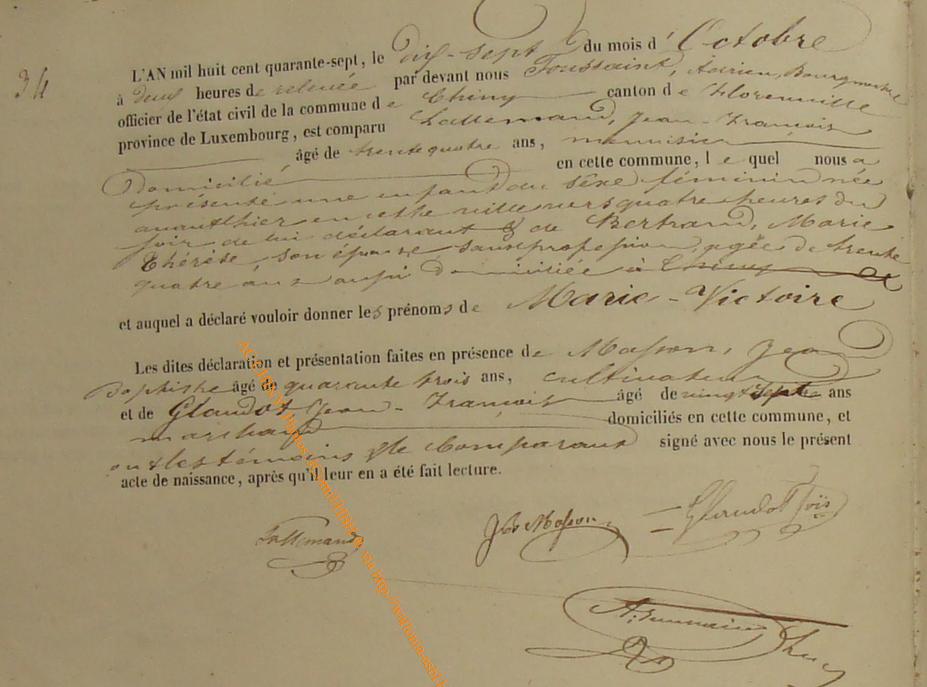 34
L'AN mil huit cent quarante-sept, le dix-sept du mois d' Octobre
à deux heures de relevée par devant nous Toussaint, Adrien, Bourgmestre
officier de l'état civil de la commune de Chiny canton de Florenville
province de Luxembourg, est comparu Lallemand, Jean-François
âgé de trente quatre ans, menuisier
Domicilié en cette commune, le quel nous a
présenté une enfant du sexe féminin née
avanthier en cette ville vers quatre heures du
soir de lui déclarant & de Bertrand, Marie
Thérèse, son épouse, sans profession, agée de trente
quatre ans aussi domiciliée à Chiny
et auquel a déclaré vouloir donner les prénoms de Marie-Victoire
Les dites déclaration et présentation faites en présence de Masson, Jean
Baptiste âgé de quarante trois ans, cultivateur
et de Glaudot, Jean-François âgé de vingt sept ans
marchand domiciliés en cette commune, et
ont les témoins & le Comparant signé avec nous le présent
acte de naissance, après qu'il leur en a été fait lecture.
Lallemand
Masson
Glaudot